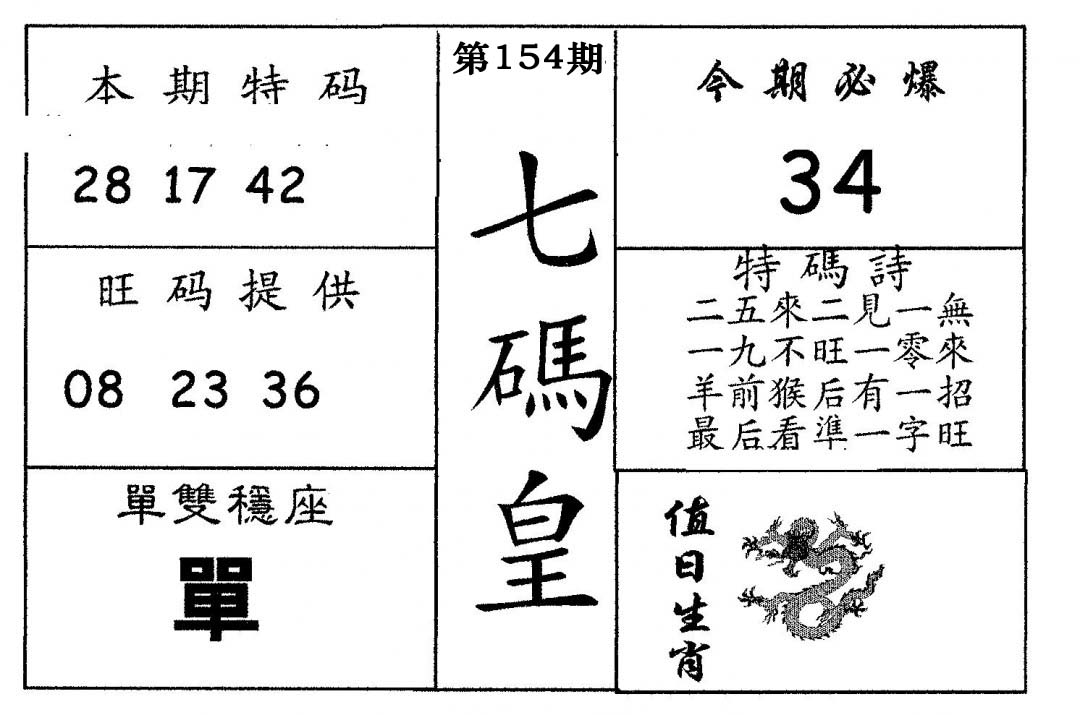 本期特码
28 17 42
旺码提供
08 23 36
單雙穩座
單
第154期
七碼皇
今期必爆
34
特碼詩
二五來二見一無
一九不旺一零來
羊前猴后有一招
最后看準一字旺
值日生肖